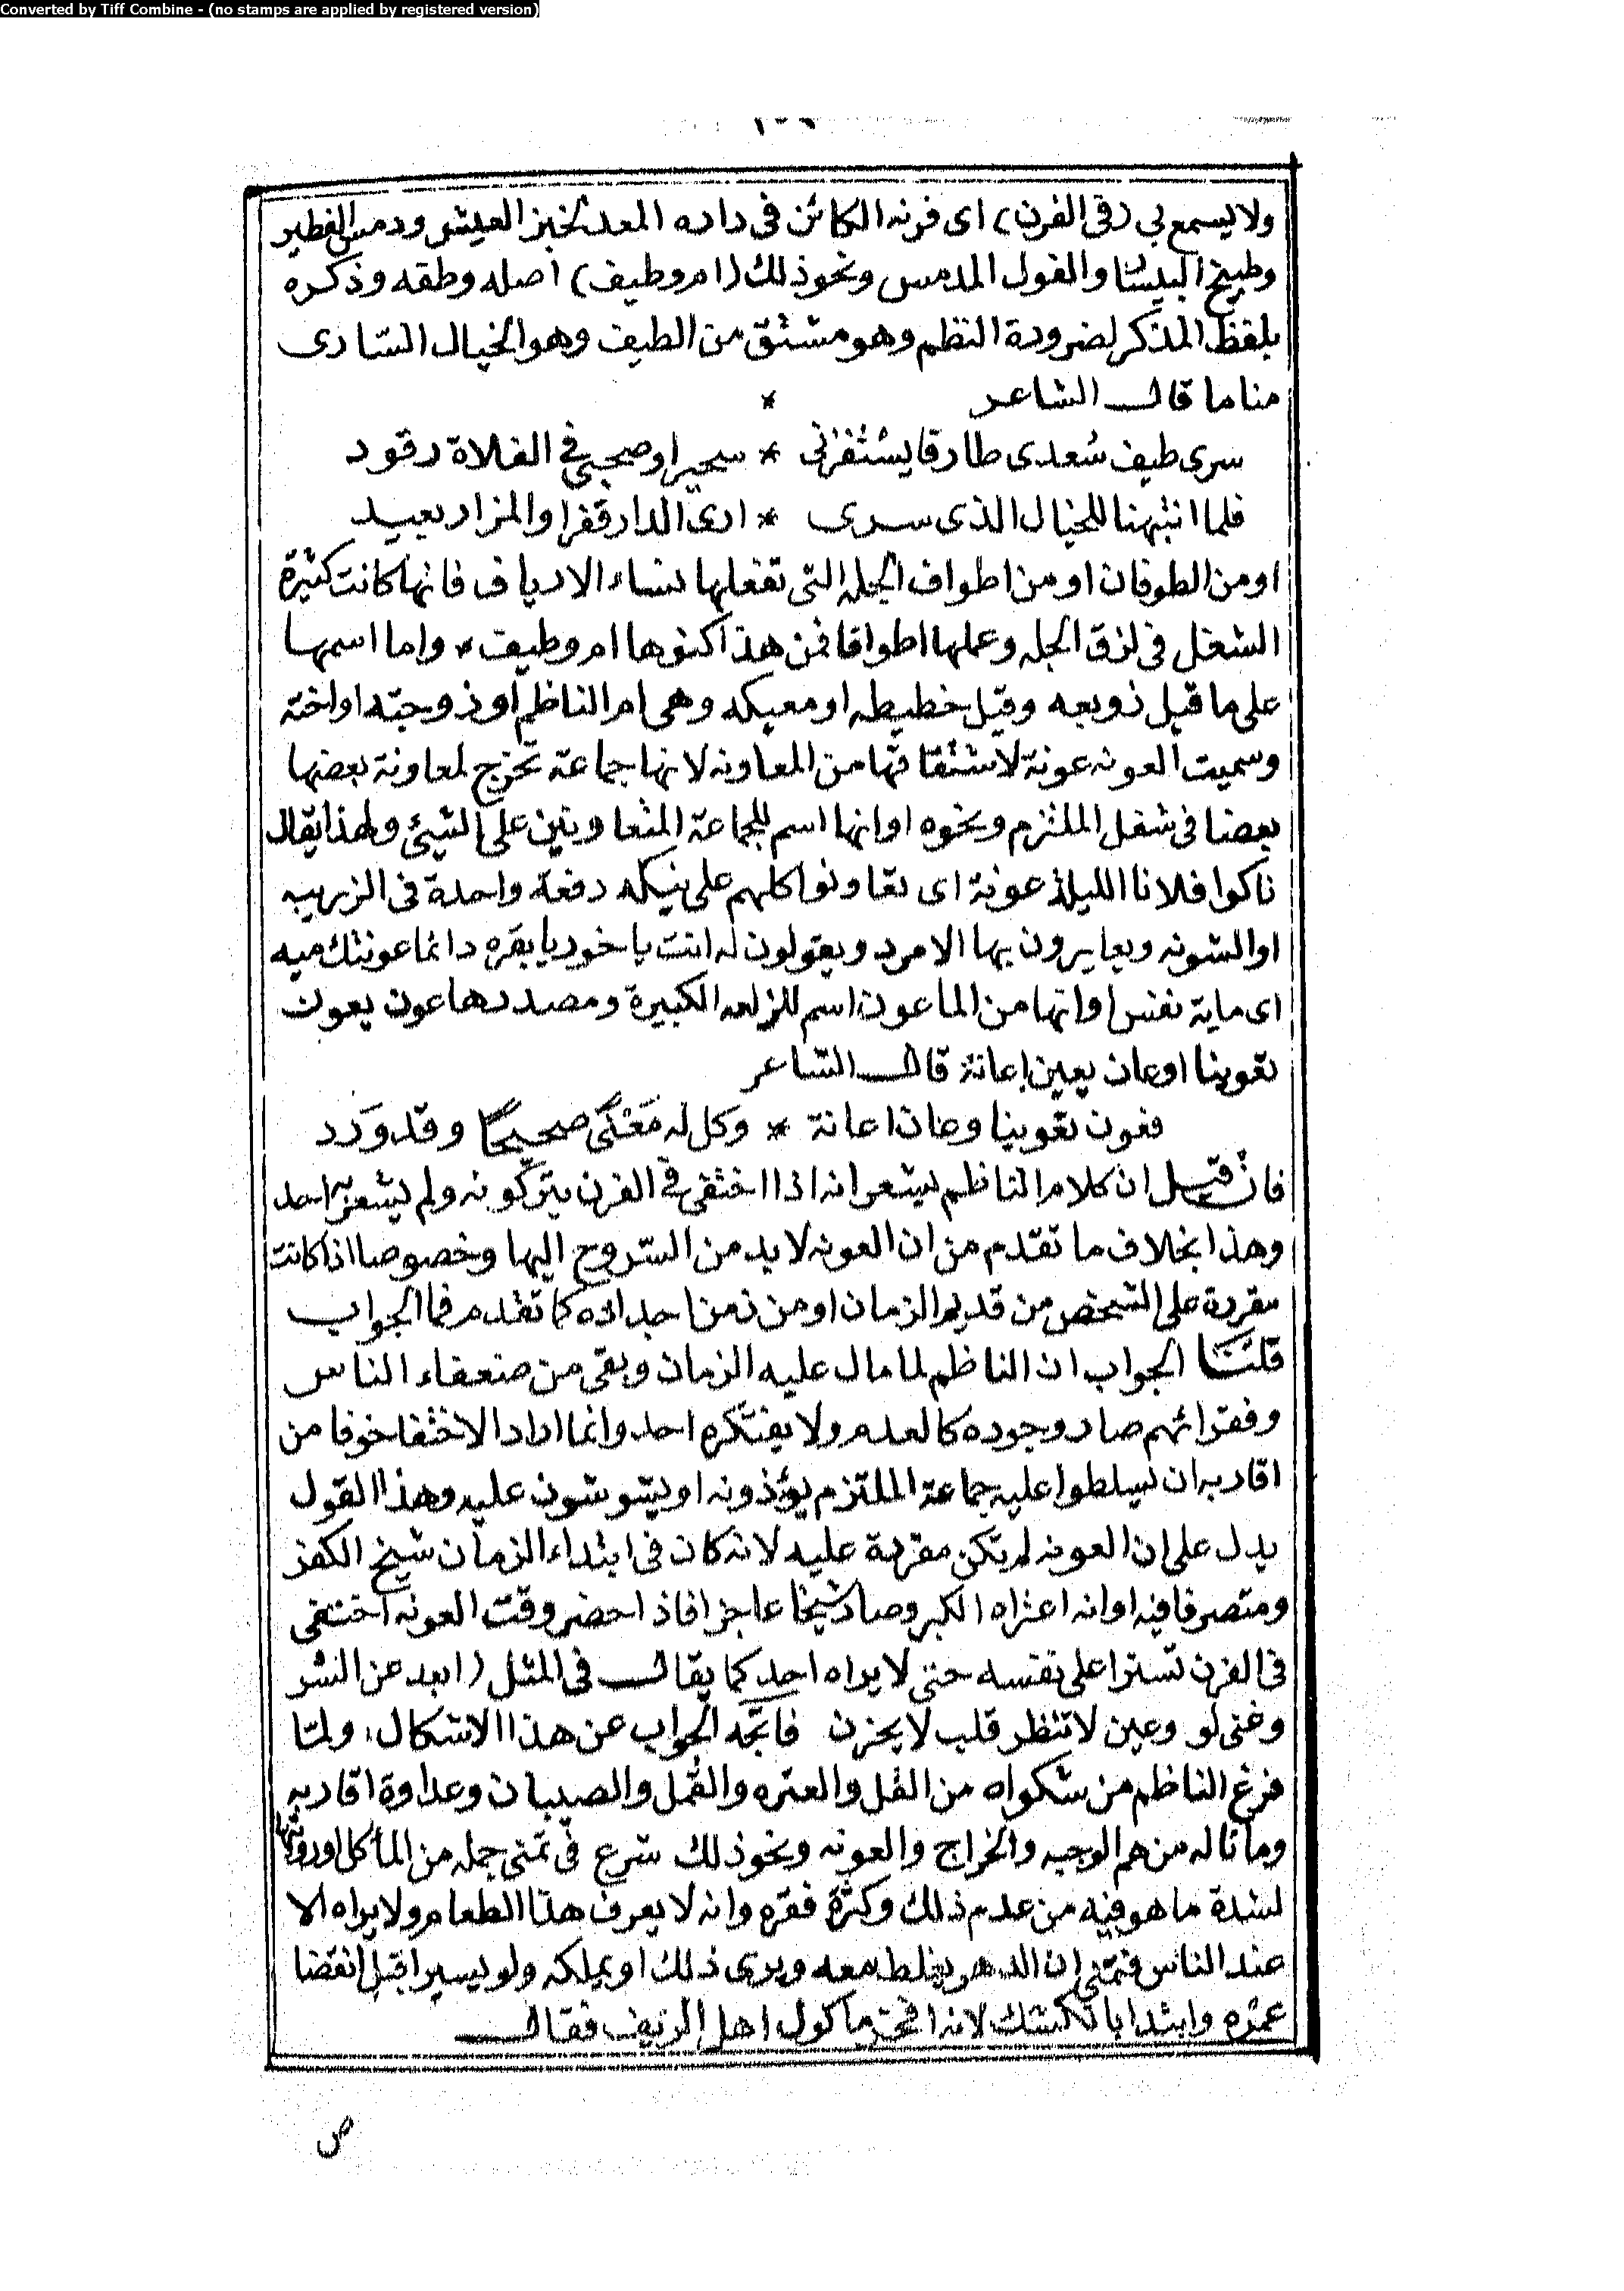 Converted by Tiff Combine - (no stamps are applied by registered version)
ولا يسمع بى (فى الفرن) اى فرنه الكائن فى داره المعد لخبز العيش ودمس الفطير
وطبيخ البيسا والفول المدمس ونحو ذلك (ام وطيف) اصله وطفه وذكره
بلفظ المذكر لضرورة النظم وهو مشتق من الطيف وهو الخيال السّارى
مناما قال الشاعر *
سرى طيف سُعدى طارقا يستفزنى * سحيرا وصحبى فى الفلاة رقود
فلما انتبهنا للخيال الذى سرى * ارى الدار قفرا والمزار بعيد
او من الطوفان او من اطواف الجله التى تفعلها نساء الارياف فانها كانت كثيرة
الشغل فى لزق الجله وعملها اطوافا فمن هذا كنوها ام وطيف * واما اسمها
على ما قيل زوبعه وقيل خطيطه او معيكه وهى ام الناظم او زوجته او اخته
وسميت العونه عونة لاشتقاقها من المعاونه لانها جماعة تخرج لمعاونة بعضها
بعضا فى شغل الملتزم ونحوه او انها اسم للجماعة المتعاونين على الشيئ ولهذا يقال
ناكوا فلانا الليلة عونة اى تعاونوا كلهم على نيكه دفعة واحدة فى الزريبه
او الشونه ويعايرون بها الامرد ويقولون له انت يا خوريا بقره دائما عونتك ميه
اى ماية نفس او انها من الماعون اسم للزلعه الكبيرة ومصدرها عون يعون
تعوينا او عان يعين إعانة قال الشاعر
فعون تعوينا وعان اعانة * وكل له مَعْنًى صحيحًا وقد وَرَد
فان قيل ان كلام الناظم يشعر انه اذا اختفى فى الفرن يتركونه ولم يشعر به احد
وهذا بخلاف ما تقدم من ان العونه لابد من السّروح اليها وخصوصا اذا كانت
مقررة على الشخص من قديم الزمان او من زمن اجداده كما تقدم فما الجواب
قلنا الجواب ان الناظم لما مال عليه الزمان وبقى من ضعفاء الناس
وفقرائهم صار وجوده كالعدم ولا يفتكره احد وانما اراد الاختفا خوفا من
اقاربه ان يسلطوا عليه جماعة الملتزم يؤذونه او يشوشون عليه وهذا القول
يدل على ان العونه لم تكن مقررة عليه لانه كان فى ابتداء الزمان شيخ الكفر
ومتصرفا فيه او انه اعتراه الكبر وصار شيخا عاجزا فاذا حضر وقت العونه اختفى
فى الفرن تسترا على نفسه حتى لا يراه احد كما يقال فى المثل (ابعد عن الشر
وغنى لو وعين لا تنظر قلب لا يحزن فاتجه الجواب عن هذا الاشكال، ولمّا
فرغ الناظم من شكواه من القل والعتره والقمل والصيبان وعداوة اقاربه
وما ناله من هم الوجبه والخراج والعونه ونحو ذلك شرع فى تمنى جمله من المأكل او رؤيتها
لشدة ما هو فيه من عدم ذلك وكثرة فقره وانه لا يعرف هذا الطعام ولا يراه الا
عند الناس فتمنى ان الدهر يغلط معه ويرى ذلك او يملكه ولو يسيرا قبل انقضا
عمره وابتدا بالكشك لانه افخر ماكول اهل الريف فقال
ص